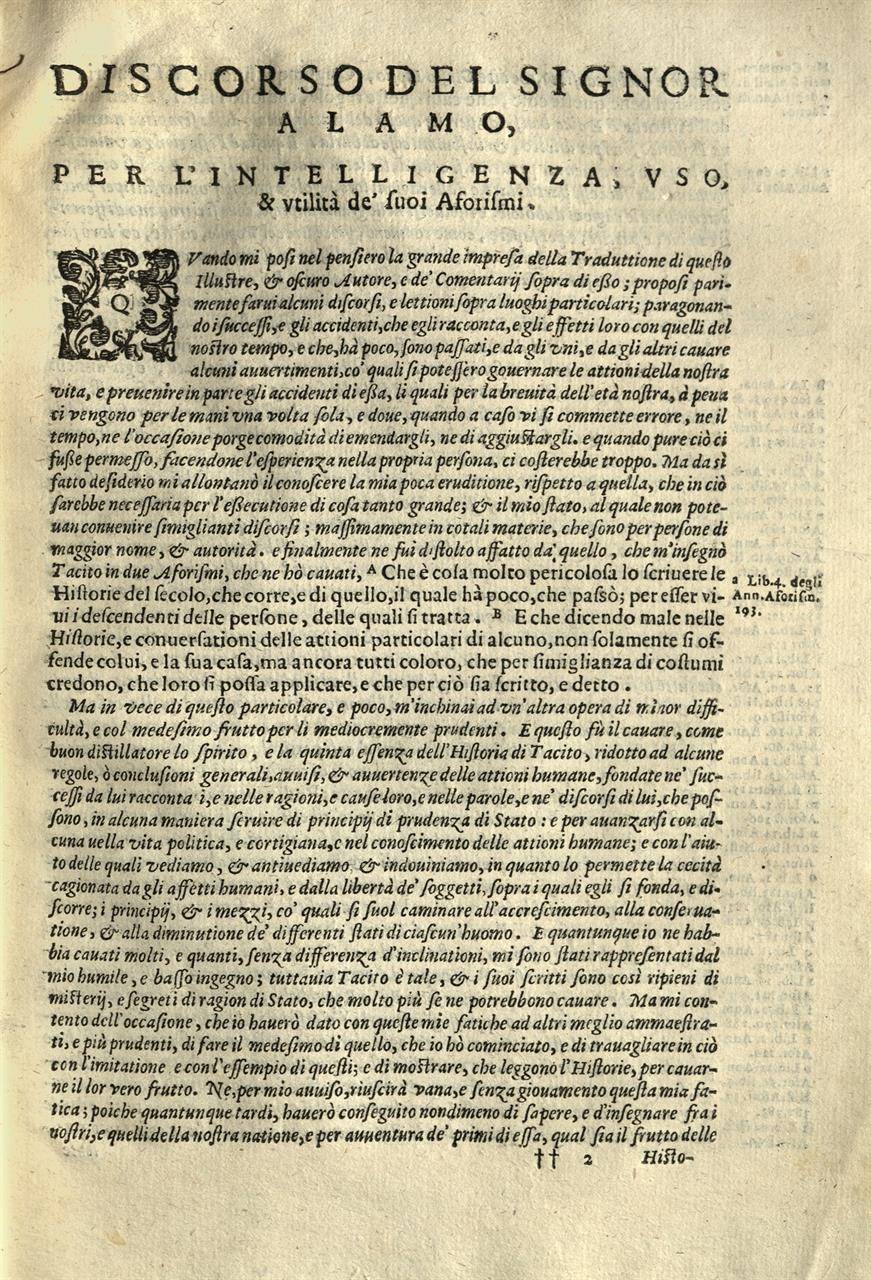 DISCORSO DEL SIGNOR
ALAMO,
PER L'INTELLIGENZA, VSO,
& vtilità de' ſuoi Aforiſmi.
QVando mi poſi nel penſiero la grande impreſa della Traduttione di queſto
Illuſtre, & oſcuro Autore, e de' Comentarij ſopra di eſſo; propoſi pari-
mente farui alcuni diſcorſi, e lettioni ſopra luoghi particolari; paragonan-
do i ſucceſſi, e gli accidenti, che egli racconta, e gli effetti loro con quelli del
noſtro tempo, e che, hà poco, ſono paſſati, e da gli vni, e da gli altri cauare
alcuni auuertimenti, co' quali ſi poteſſero gouernare le attioni della noſtra
vita, e preuenire in parte gli accidenti di eſſa, li quali per la breuità dell'età noſtra, à pena
ci vengono per le mani vna volta ſola, e doue, quando a caſo vi ſi commette errore, ne il
tempo, ne l'occaſione porge comodità di emendargli, ne di aggiuſtargli. e quando pure ciò ci
fuſſe permeſſo, facendone l'eſperienza nella propria perſona, ci coſterebbe troppo. Ma da sì
fatto deſiderio mi allontanò il conoſcere la mia poca eruditione, riſpetto a quella, che in ciò
ſarebbe neceſſaria per l'eſſecutione di coſa tanto grande; & il mio ſtato, al quale non pote-
uan conuenire ſimiglianti diſcorſi; maſſimamente in cotali materie, che ſono per perſone di
maggior nome, & autorità. e finalmente ne fui diſtolto affatto da quello, che m'inſegnò
Tacito in due Aforiſmi, che ne hò cauati, A Che è coſa molto pericoloſa lo ſcriuere le
Hiſtorie del ſecolo, che corre, e di quello, il quale hà poco, che paſsò; per eſſer vi-
ui i deſcendenti delle perſone, delle quali ſi tratta. B E che dicendo male nelle
Hiſtorie, e conuerſationi delle attioni particolari di alcuno, non ſolamente ſi of-
fende colui, e la ſua caſa, ma ancora tutti coloro, che per ſimiglianza di coſtumi
credono, che loro ſi poſſa applicare, e che per ciò ſia ſcritto, e detto.
a Lib. 4. degli
Ann. Aforiſm.
193.
Ma in vece di queſto particolare, e poco, m'inchinai ad vn'altra opera di minor diffi-
cultà, e col medeſimo frutto per li mediocremente prudenti. E queſto fù il cauare, come
buon diſtillatore lo ſpirito, e la quinta eſſenza dell'Hiſtoria di Tacito, ridotto ad alcune
regole, ò concluſioni generali, auuiſi, & auuertenze delle attioni humane, fondate ne' ſuc-
ceſſi da lui racconta i, e nelle ragioni, e cauſe loro, e nelle parole, e ne' diſcorſi di lui, che poſ-
ſono, in alcuna maniera ſeruire di principij di prudenza di Stato: e per auanzarſi con al-
cuna uella vita politica, e cortigiana, e nel conoſcimento delle attioni humane; e con l'aiu-
to delle quali vediamo, & antiuediamo & indouiniamo, in quanto lo permette la cecità
cagionata da gli affetti humani, e dalla libertà de' ſoggetti, ſopra i quali egli ſi fonda, e di-
ſcorre; i principij, & i mezzi, co' quali ſi ſuol caminare all'accreſcimento, alla conſerua-
tione, & alla diminutione de' differenti ſtati di ciaſcun'huomo. E quantunque io ne hab-
bia cauati molti, e quanti, ſenza differenza d'inclinationi, mi ſono ſtati rappreſentati dal
mio humile, e baſſo ingegno; tuttauia Tacito è tale, & i ſuoi ſcritti ſono così ripieni di
miſterij, e ſegreti di ragion di Stato, che molto più ſe ne potrebbono cauare. Ma mi con-
tento dell'occaſione, che io hauerò dato con queſte mie fatiche ad altri meglio ammaeſtra-
ti, e più prudenti, di fare il medeſimo di quello, che io hò cominciato, e di trauagliare in ciò
con l'imitatione e con l'eſſempio di queſti; e di moſtrare, che leggono l'Hiſtorie, per cauar-
ne il lor vero frutto. Ne, per mio auuiſo, riuſcirà vana, e ſenza giouamento queſta mia fa-
tica; poiche quantunque tardi, hauerò conſeguito nondimeno di ſapere, e d'inſegnare fra i
noſtri, e quelli della noſtra natione, e per auuentura de' primi di eſſa, qual ſia il frutto delle
†† 2 Hiſto-